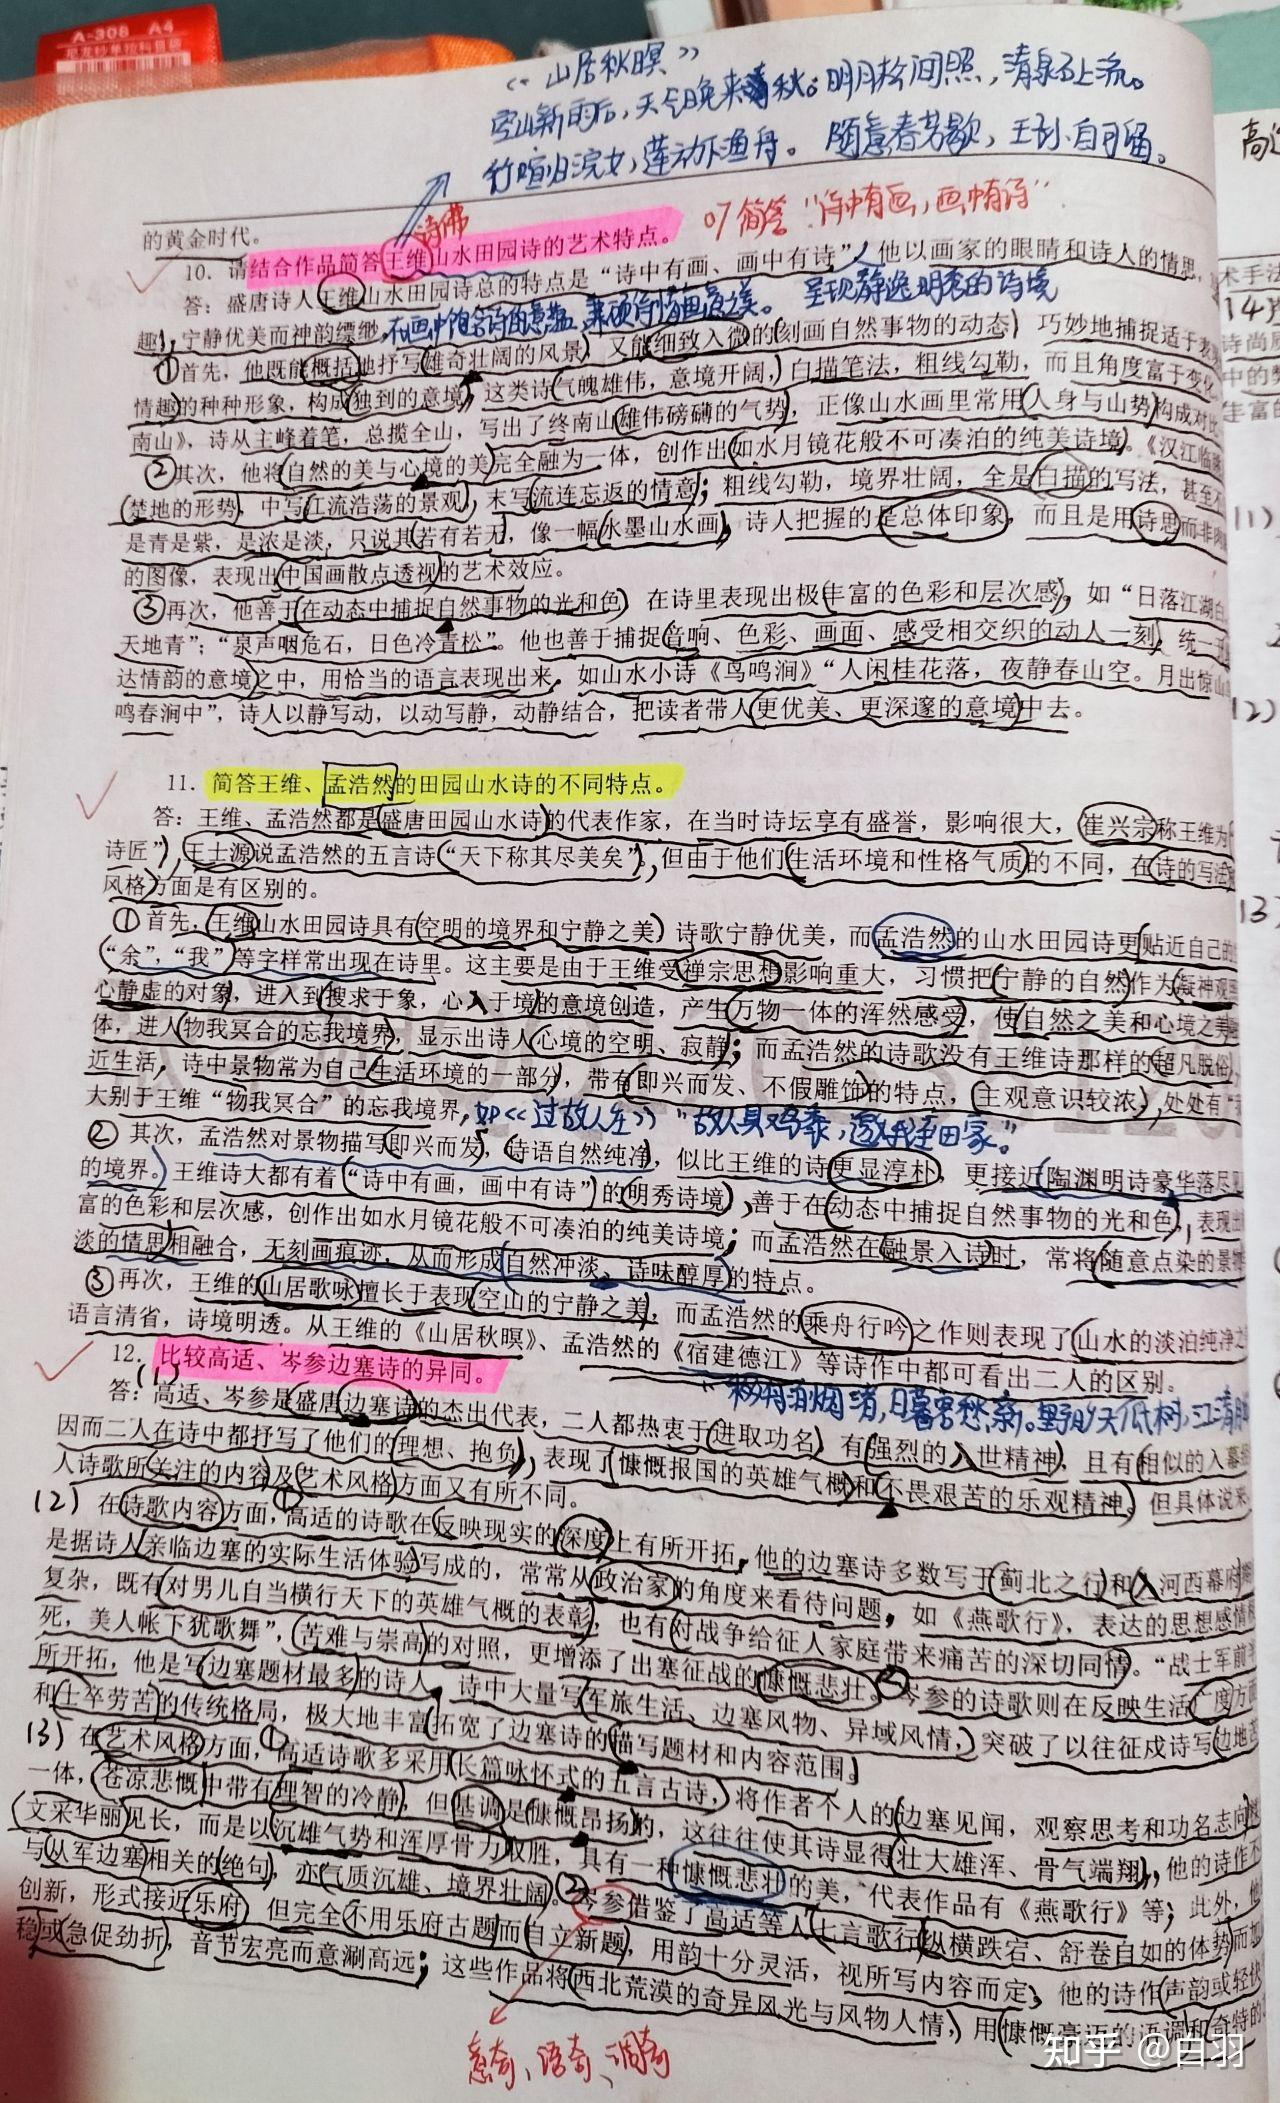 A-308 A4
《山居秋暝》
空山新雨后，天气晚来秋。明月松间照，清泉石上流。
竹喧归浣女，莲动下渔舟。 随意春芳歇，王孙自可留。
诗佛
07简答“诗中有画，画中有诗”
的黄金时代。
10. 请结合作品简答王维山水田园诗的艺术特点。
答：盛唐诗人王维山水田园诗总的特点是“诗中有画、画中有诗”，他以画家的眼睛和诗人的情思，
呈现静逸明秀的诗境
趣，宁静优美而神韵缥缈，
①首先，他既能概括地抒写雄奇壮阔的风景，又能细致入微的刻画自然事物的动态，巧妙地捕捉适于表
情趣的种种形象，构成独到的意境，这类诗气魄雄伟，意境开阔，白描笔法，粗线勾勒，而且角度富于变化
南山》，诗从主峰着笔，总揽全山，写出了终南山雄伟磅礴的气势，正像山水画里常用人身与山势构成对比
②其次，他将自然的美与心境的美完全融为一体，创作出如水月镜花般不可凑泊的纯美诗境。《汉江临
楚地的形势，中写江流浩荡的景观，末写流连忘返的情意；粗线勾勒，境界壮阔，全是白描的写法，甚至不
是青是紫，是浓是淡，只说其若有若无，像一幅水墨山水画，诗人把握的是总体印象，而且是用诗思而非肉
的图像，表现出中国画散点透视的艺术效应。
③再次，他善于在动态中捕捉自然事物的光和色，在诗里表现出极丰富的色彩和层次感，如“日落江湖白
天地青”；“泉声咽危石，日色冷青松”。他也善于捕捉音响、色彩、画面、感受相交织的动人一刻，统一
达情韵的意境之中，用恰当的语言表现出来，如山水小诗《鸟鸣涧》“人闲桂花落，夜静春山空。月出惊山
鸣春涧中”，诗人以静写动，以动写静，动静结合，把读者带人更优美、更深邃的意境中去。
11. 简答王维、孟浩然的田园山水诗的不同特点。
答：王维、孟浩然都是盛唐田园山水诗的代表作家，在当时诗坛享有盛誉，影响很大，崔兴宗称王维为
诗匠”，王士源说孟浩然的五言诗“天下称其尽美矣”，但由于他们生活环境和性格气质的不同，在诗的写法
风格方面是有区别的。
①首先，王维山水田园诗具有空明的境界和宁静之美，诗歌宁静优美，而孟浩然的山水田园诗更贴近自己的
“余”，“我”等字样常出现在诗里。这主要是由于王维受禅宗思想影响重大，习惯把宁静的自然作为凝神观
心静虚的对象，进入到搜求于象，心入于境的意境创造，产生万物一体的浑然感受，使自然之美和心境之美
体，进人物我冥合的忘我境界，显示出诗人心境的空明、寂静；而孟浩然的诗歌没有王维诗那样的超凡脱俗
近生活，诗中景物常为自己生活环境的一部分，带有即兴而发、不假雕饰的特点，主观意识较浓，处处有“我
大别于王维“物我冥合”的忘我境界，如《过故人庄》“故人具鸡黍，邀我至田家。”
② 其次，孟浩然对景物描写即兴而发，诗语自然纯净，似比王维的诗更显淳朴，更接近陶渊明诗豪华落尽见
的境界。王维诗大都有着“诗中有画，画中有诗”的明秀诗境，善于在动态中捕捉自然事物的光和色，表现出
富的色彩和层次感，创作出如水月镜花般不可凑泊的纯美诗境；而孟浩然在融景入诗时，常将随意点染的景物
淡的情思相融合，无刻画痕迹，从而形成自然冲淡、诗味醇厚的特点。
③再次，王维的山居歌咏擅长于表现空山的宁静之美，而孟浩然的乘舟行吟之作则表现了山水的淡泊纯净之
语言清省，诗境明透。从王维的《山居秋暝》、孟浩然的《宿建德江》等诗作中都可看出二人的区别。
移舟泊烟渚，日暮客愁新。野旷天低树，江清月
12. 比较高适、岑参边塞诗的异同。
（1）
答：高适、岑参是盛唐边塞诗的杰出代表，二人都热衷于进取功名，有强烈的入世精神，且有相似的入幕
因而二人在诗中都抒写了他们的理想、抱负，表现了慷慨报国的英雄气概和不畏艰苦的乐观精神。但具体说来
人诗歌所关注的内容及艺术风格方面又有所不同。
（2）在诗歌内容方面，①高适的诗歌在反映现实的深度上有所开拓，他的边塞诗多数写于蓟北之行和入河西幕府
是据诗人亲临边塞的实际生活体验写成的，常常从政治家的角度来看待问题，如《燕歌行》，表达的思想感情
复杂，既有对男儿自当横行天下的英雄气概的表彰，也有对战争给征人家庭带来痛苦的深切同情。“战士军前半
死，美人帐下犹歌舞”，苦难与崇高的对照，更增添了出塞征战的慷慨悲壮。②岑参的诗歌则在反映生活广度方面
所开拓，他是写边塞题材最多的诗人，诗中大量写军旅生活、边塞风物、异域风情，突破了以往征戍诗写边地苦
和士卒劳苦的传统格局，极大地丰富拓宽了边塞诗的描写题材和内容范围。
（3）在艺术风格方面，①高适诗歌多采用长篇咏怀式的五言古诗，将作者个人的边塞见闻，观察思考和功名志向
一体，苍凉悲慨中带有理智的冷静，但基调是慷慨昂扬的，这往往使其诗显得壮大雄浑、骨气端翔，他的诗作不
文采华丽见长，而是以沉雄气势和浑厚骨力取胜，具有一种慷慨悲壮的美，代表作品有《燕歌行》等；此外，他
与从军边塞相关的绝句，亦气质沉雄、境界壮阔。②岑参借鉴了高适等人七言歌行纵横跌宕、舒卷自如的体势而加
创新，形式接近乐府，但完全不用乐府古题而自立新题，用韵十分灵活，视所写内容而定，他的诗作声韵或轻快
稳或急促劲折，音节宏亮而意涮高远；这些作品将西北荒漠的奇异风光与风物人情，用慷慨豪迈的语调和奇特的
意奇、语奇、调奇
14
（1）
12）
13
知乎 @白羽